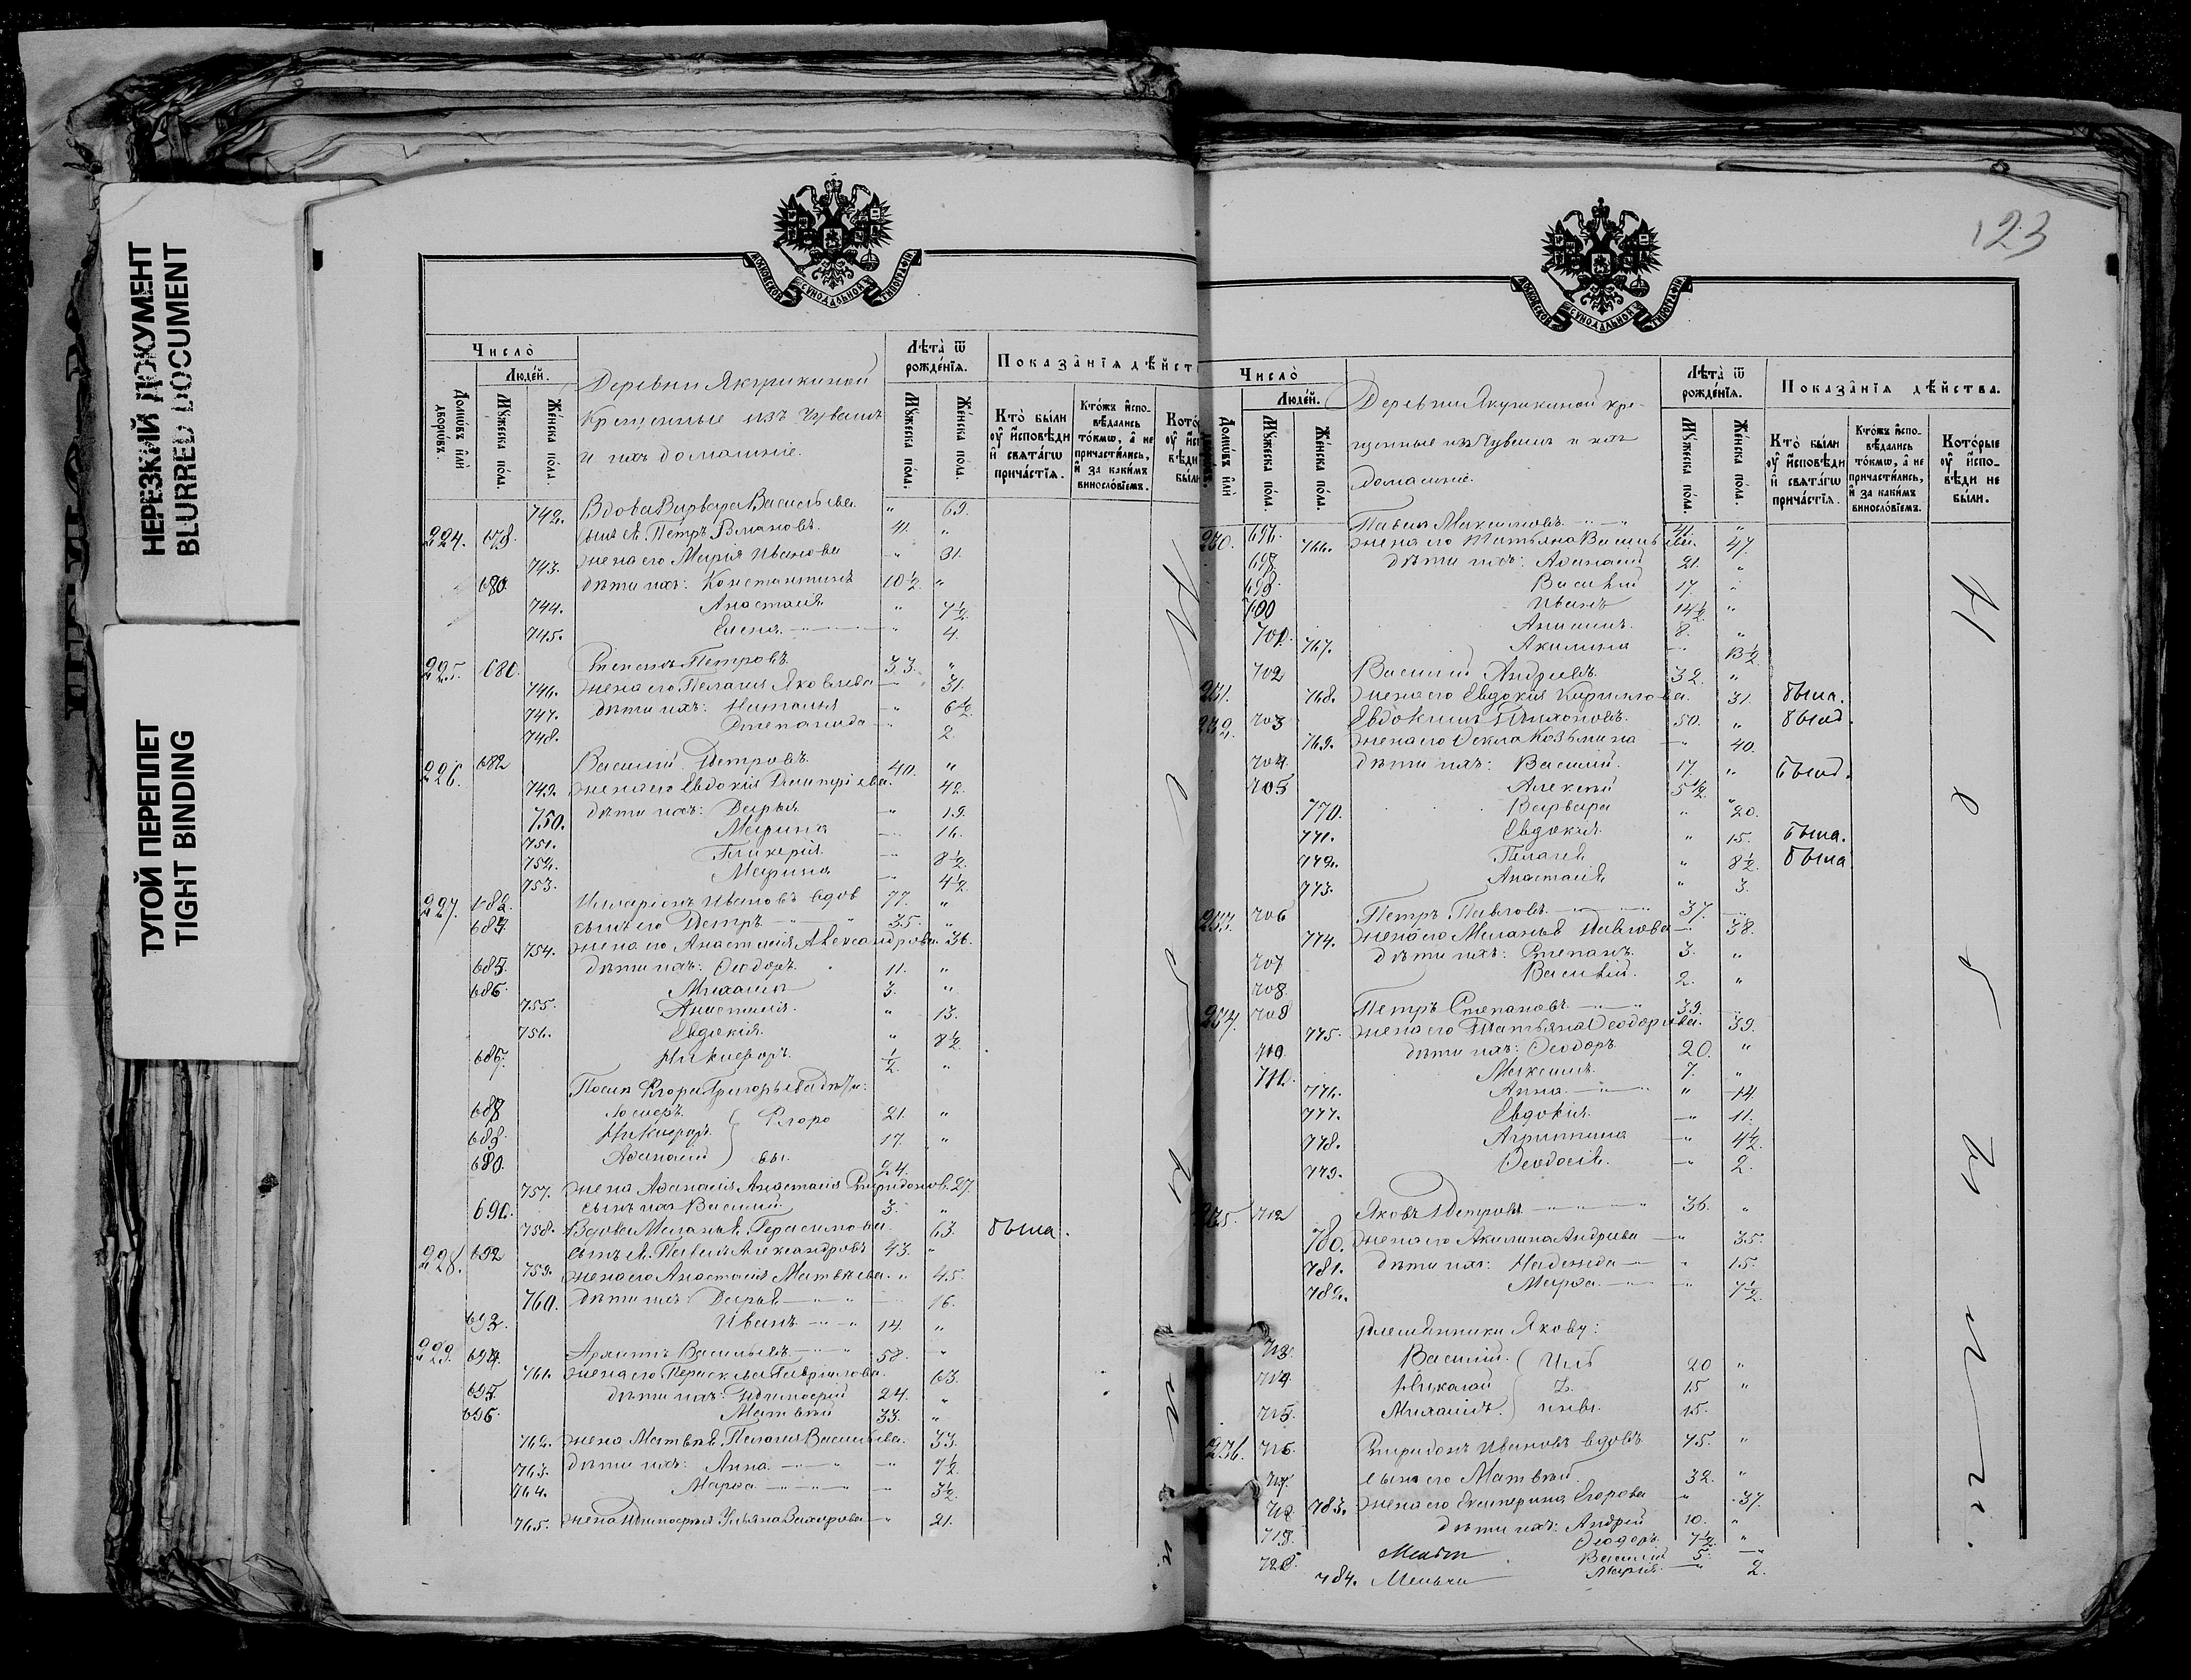 НЕРЕЗКИЙ ДОКУМЕНТ
BLURRED DOCUMENT
ТУГОЙ ПЕРЕПЛЕТ
TIGHT BINDING
МОСКОВСКОЙ СѴНОДАЛЬНОЙ ТИПОГРАФІИ
Число̀
Люде́й.
Домѡ́въ и҆лѝ дворѡ́въ.
Мꙋ́жеска по́ла.
Же́нска по́ла.
Деревни Якушкиной
Крещенные изъ Чувашъ
и ихъ домашніе.
Лѣ́та ѿ рожде́нїѧ.
Мꙋ́жеска по́ла.
Же́нска по́ла.
Показа̑нїѧ дѣйст
Кто̀ бы́ли оу҆ и҆сповѣ́ди и҆ свѧта́гѡ прича́стїѧ.
Кто́жъ и҆спо-вѣ́дались то́кмѡ, а҆ не причасти́лись, и҆ за каки́мъ винослові́емъ.
742. Вдова Варвара Васильева " 69.
224. 678. сынъ ея Петръ Романовъ. 41. "
743. жена его Марія Иванова " 31.
680. дѣти ихъ: Константинъ 10½ "
744. Анастасія " 7½
745. Елена " 4.
225. 680. Степанъ Петровъ 33. "
746. жена его Пелагия Яковлева 31.
747. дѣти ихъ: Наталья 6½
748. Степанида 2.
226. 682 Василій Петровъ 40. "
749. жена его Евдокія Димитріева. 42.
750. дѣти ихъ: Дарья " 19.
751. Марина 16.
752. Гликерія 8½
753. Марина 4½
227. 683. Иларіонъ Ивановъ вдов 77. "
684. сынъ его Петръ 35. "
754. жена его Анастасія Александрова 36.
685. дѣти ихъ: Ѳеодоръ. 11. "
686. Михаилъ 3. "
755. Анастасія " 13.
756. Евдокія. " 8½
687. Никифоръ ½ "
Флора Григорьева дѣти:
688 Флоро 21. "
689. Никифоръ 17. "
690. Аѳанасій вы. 24.
757. жена Аѳанасія Анастасія Спиридонов. 27.
691. сынъ ихъ Василій 3. "
758. Вдова Меланья Герасимова 63. была.
228. 692 сынъ ея Павелъ Александровъ 43. "
759. жена его Анастасія Матвѣева. " 45.
760. дѣти ихъ: Дарья 16.
693. Иванъ 14. "
229. 694. Архипъ Васильевъ 58. "
761. жена его Параскева Гаврилова. 63.
695. дѣти ихъ: Тимоѳей 24. "
696. Матвѣй 33. "
762. жена Матвѣя Пелагия Васильева. 33.
763. дѣти ихъ: Анна 7½
764. Марѳа 3½
765. жена Тимоѳея Ульяна Захарова 21.
123
МОСКОВСКОЙ СѴНОДАЛЬНОЙ ТИПОГРАФІИ
Число̀
Люде́й.
Мꙋ́жеска по́ла.
Же́нска по́ла.
Деревни Якушкиной кре-
щенные изъ Чувашъ и ихъ
домашніе.
Лѣ́та ѿ рожде́нїѧ.
Мꙋ́жеска по́ла.
Же́нска по́ла.
Показа̑нїѧ дѣ́йства.
Кто̀ бы́ли оу҆ и҆сповѣ́ди и҆ свѧта́гѡ прича́стїѧ.
Кто́жъ и҆спо-вѣ́дались то́кмѡ, а҆ не причасти́лись, и҆ за каки́мъ винослові́емъ.
Кото́рые оу҆ и҆спо-вѣ́ди не бы́ли.
230. 696. Павелъ Максимовъ 41. "
766. жена его Татьяна Васильева. 47.
698. дѣти ихъ: Аѳанасій 21. "
699. Василій 17. "
700 Иванъ 14½ "
701. Анисимъ. 8. "
767. Акилина 13½
702 Василій Андреевъ 32. "
231. 768. жена его Евдокія Кириллова. 31. была.
232. 703 Евдокимъ Тихоновъ. 50. " былъ.
769. жена его Ѳекла Козьмина 40.
704. дѣти ихъ: Василій. 17. " былъ.
705 Алексѣй 5½
770. Варвара " 20.
771. Евдокія " 15. была.
772. Пелагея " 8½ была
773. Анастасія " 3.
233. 706 Петръ Павловъ 37.
774. жена его Меланья Павлова 38.
707 дѣти ихъ: Степанъ 3. "
708. Василій. 2. "
234. 709 Петръ Степановъ 39.
775. жена его Татьяна Ѳеодорова. 39.
710. дѣти ихъ: Ѳеодоръ. 20. "
711. Максимъ 7. "
776. Анна " 14.
777. Евдокія 11.
778. Агриппина 4½
779. Ѳеодосія. 2.
235. 712 Яковъ Петровъ 36. "
780. жена его Акилина Андреева 35.
781. дѣти ихъ: Надежда 15.
782. Марѳа 7½
племянники Якову:
713. Василій. 20 "
714. Николай 15 "
715. Михаилъ. 15.
236. 716. Спиридонъ Ивановъ вдовъ 75. "
717. сынъ его Матвѣй. 32. "
783. жена его Екатерина Егорова " 37.
718. дѣти ихъ: Андрей 10. "
719. Ѳеодоръ 7½ "
720. Василій 5.
784. Марія 2.